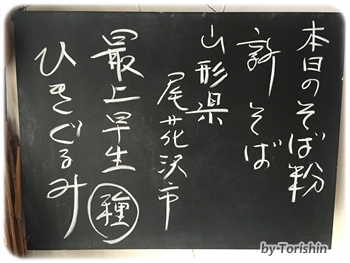 本日のそば粉
新そば
山形県
尾花沢市
最上早生種
ひきぐるみ
by Torishin